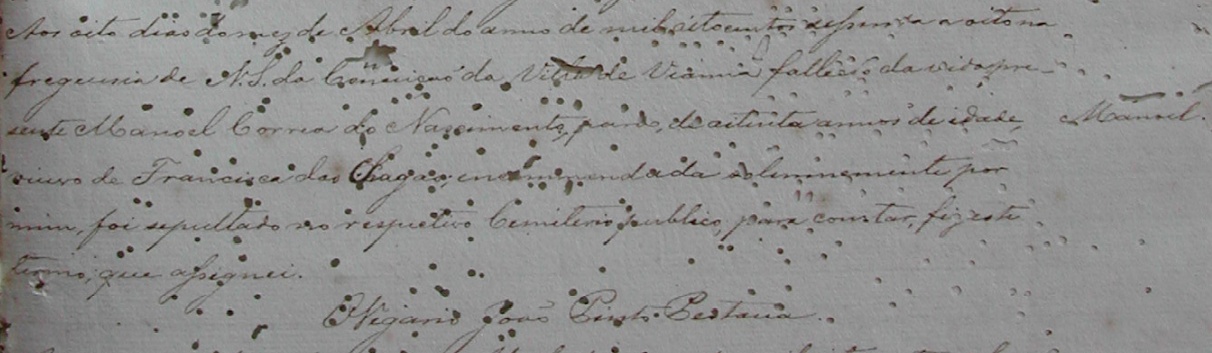 Aos oito dias do mez de Abril do anno de mil oitocentos sessenta a oito na
freguesia de N. S. da Conceiçaõ da Villa de Vianna falleceo da vida pre-
sente Manoel Correa do Nascimento, pardo, de oitenta annos de idade, Manoel.
viuvo de Francisca das Chagas, encommendada solemnemente por
mim, foi sepultado no respetivo Cemiterio publico, para constar, fiz este
termo, que assignei.
O Vigario João Pinto Pestana.